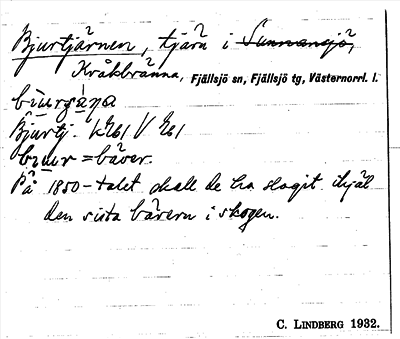 Bjurtjärnen, tjärn i Sunnansjö,
Kråkbränna, Fjällsjö sn, Fjällsjö tg, Västernorrl. l.
Bjurtj. kEb1 V Eb1
biuur = bäver.
På 1850-talet skall de ha slagit ihjäl
den sista bävern i skogen.
C. LINDBERG 1932.